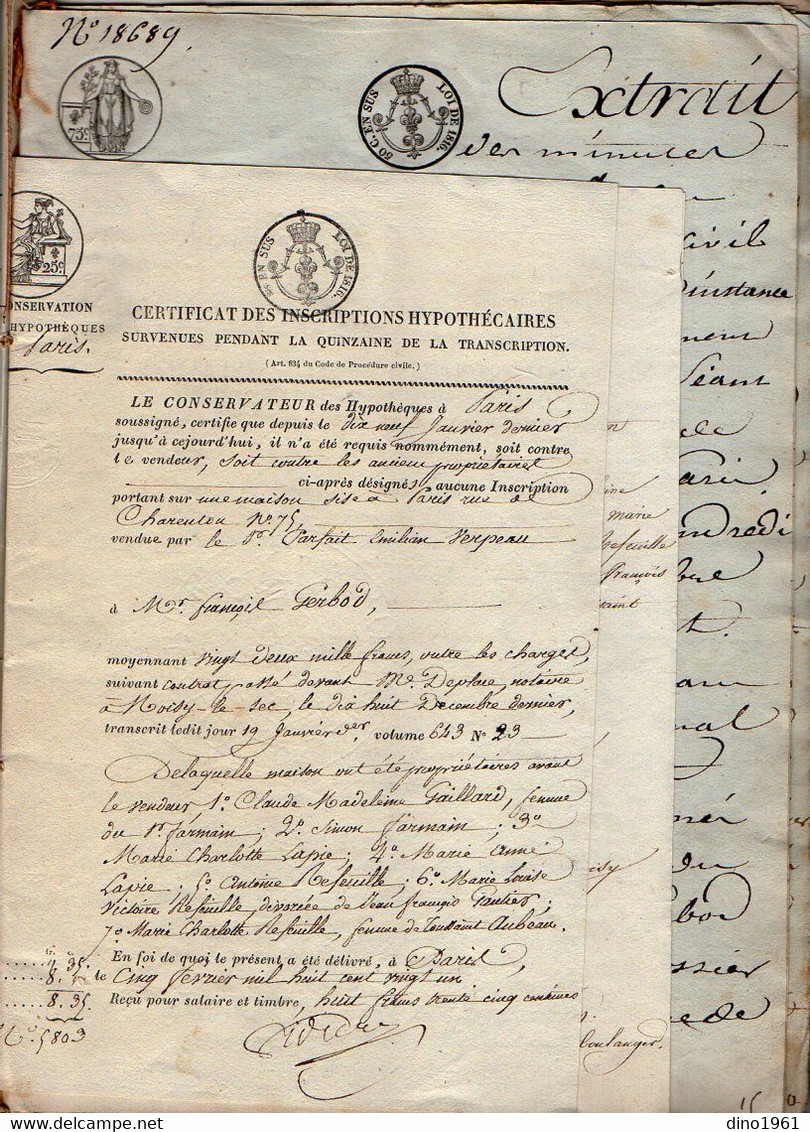 N° 18689
75c
50 C. EN SUS LOI DE 1816.
Extrait
des minutes
civil
d'instance
Séant
25c
EN SUS LOI DE 1816.
CONSERVATION
HYPOTHÈQUES
Paris.
CERTIFICAT DES INSCRIPTIONS HYPOTHÉCAIRES
SURVENUES PENDANT LA QUINZAINE DE LA TRANSCRIPTION.
(Art. 834 du Code de Procédure civile.)
LE CONSERVATEUR des Hypothèques à Paris
soussigné, certifie que depuis le dix neuf Janvier dernier
jusqu'à cejourd'hui, il n'a été requis nommément, soit contre
le vendeur, soit contre les anciens propriétaires
ci-après désignés, aucune Inscription
portant sur une maison sise à Paris rue de
Charenton N° 75,
vendue par le Sr. Parfait Emilian Verpeau
à Mr. François Gerbod,
moyennant vingt deux mille francs, outre les charges,
suivant contrat passé devant Me. Deplace, notaire
à Noisy-le-sec, le dix huit Décembre dernier,
transcrit ledit jour 19 Janvier der volume 643 N° 23
Delaquelle maison ont été propriétaires avant
le vendeur, 1° Claude Madeleine Gaillard, femme
du Sr. Jarmain; 2° Simon Jarmain; 3°
Marie Charlotte Lapie; 4° Marie Anne
Lapie; 5° Antoine Refeuille; 6° Marie Louise
Victoire Refeuille, divorcée de Jean François Gautier;
7° Marie Charlotte Refeuille, femme de Toussaint Aubeau.
En foi de quoi le présent a été délivré, à Paris,
le Cinq février mil huit cent vingt un
Reçu pour salaire et timbre, huit francs trente cinq centimes
8. 35
N° 5803
marie
Refeuille
françois
boulanger.
dino1961